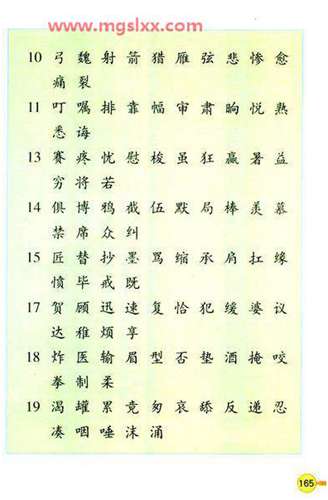 www.mgslxx.com
10 弓 魏 射 箭 猎 雁 弦 悲 惨 愈
痛 裂
11 叮 嘱 排 靠 幅 审 肃 晌 悦 熟
悉 诲
13 赛 疼 忧 慰 梭 虽 狂 赢 暑 益
穷 将 若
14 俱 博 鸦 截 伍 默 局 棒 羡 慕
禁 席 众 纠
15 匠 替 抄 墨 骂 缩 承 肩 扛 缘
愤 毕 戒 既
17 贺 顾 迅 速 复 恰 犯 缓 婆 议
达 稚 烦 享
18 炸 医 输 眉 型 否 垫 酒 掩 咬
拳 制 柔
19 渴 罐 累 竟 匆 哀 舔 反 递 忍
凑 咽 唾 沫 涌
165